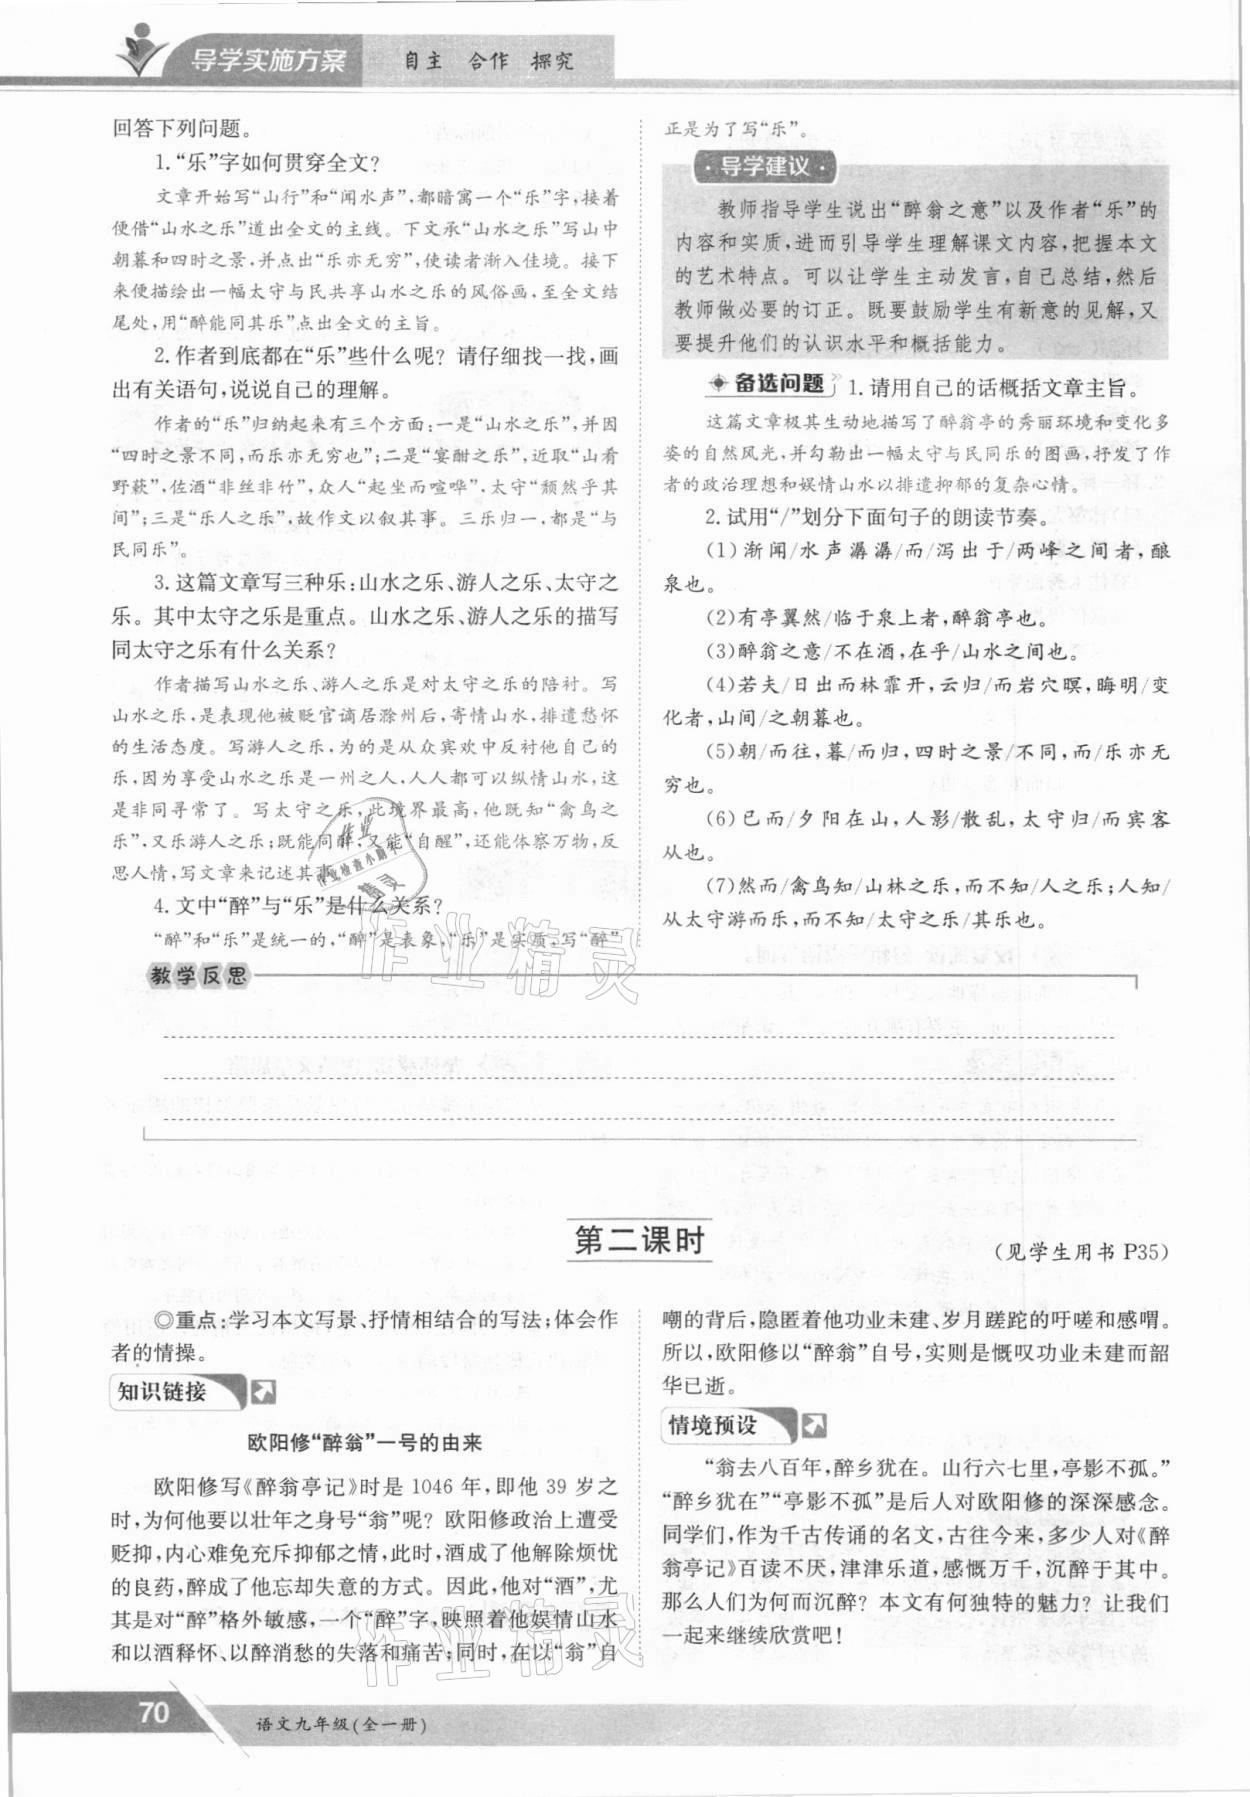 导学实施方案
自主 合作 探究
回答下列问题。
1.“乐”字如何贯穿全文?
文章开始写“山行”和“闻水声”,都暗寓一个“乐”字,接着
便借“山水之乐”道出全文的主线。下文承“山水之乐”写山中
朝暮和四时之景,并点出“乐亦无穷”,使读者渐入佳境。接下
来便描绘出一幅太守与民共享山水之乐的风俗画,至全文结
尾处,用“醉能同其乐”点出全文的主旨。
2.作者到底都在“乐”些什么呢? 请仔细找一找,画
出有关语句,说说自己的理解。
作者的“乐”归纳起来有三个方面:一是“山水之乐”,并因
“四时之景不同,而乐亦无穷也”;二是“宴酣之乐”,近取“山肴
野蔌”,佐酒“非丝非竹”,众人“起坐而喧哗”,太守“颓然乎其
间”;三是“乐人之乐”,故作文以叙其事。三乐归一,都是“与
民同乐”。
3.这篇文章写三种乐:山水之乐、游人之乐、太守之
乐。其中太守之乐是重点。山水之乐、游人之乐的描写
同太守之乐有什么关系?
作者描写山水之乐、游人之乐是对太守之乐的陪衬。写
山水之乐,是表现他被贬官谪居滁州后,寄情山水,排遣愁怀
的生活态度。写游人之乐,为的是从众宾欢中反衬他自己的
乐,因为享受山水之乐是一州之人,人人都可以纵情山水,这
是非同寻常了。写太守之乐,此境界最高,他既知“禽鸟之
乐”,又乐游人之乐;既能同醉,又能“自醒”,还能体察万物,反
思人情,写文章来记述其事。
4.文中“醉”与“乐”是什么关系?
“醉”和“乐”是统一的,“醉”是表象,“乐”是实质,写“醉”
正是为了写“乐”。
·导学建议·
教师指导学生说出“醉翁之意”以及作者“乐”的
内容和实质,进而引导学生理解课文内容,把握本文
的艺术特点。可以让学生主动发言,自己总结,然后
教师做必要的订正。既要鼓励学生有新意的见解,又
要提升他们的认识水平和概括能力。
备选问题 1.请用自己的话概括文章主旨。
这篇文章极其生动地描写了醉翁亭的秀丽环境和变化多
姿的自然风光,并勾勒出一幅太守与民同乐的图画,抒发了作
者的政治理想和娱情山水以排遣抑郁的复杂心情。
2.试用“/”划分下面句子的朗读节奏。
(1)渐闻/水声潺潺/而/泻出于/两峰之间者,酿
泉也。
(2)有亭翼然/临于泉上者,醉翁亭也。
(3)醉翁之意/不在酒,在乎/山水之间也。
(4)若夫/日出而林霏开,云归/而岩穴暝,晦明/变
化者,山间/之朝暮也。
(5)朝/而往,暮/而归,四时之景/不同,而/乐亦无
穷也。
(6)已而/夕阳在山,人影/散乱,太守归/而宾客
从也。
(7)然而/禽鸟知/山林之乐,而不知/人之乐;人知/
从太守游而乐,而不知/太守之乐/其乐也。
教学反思
第二课时
(见学生用书 P35)
◎重点:学习本文写景、抒情相结合的写法;体会作
者的情操。
知识链接
欧阳修“醉翁”一号的由来
欧阳修写《醉翁亭记》时是 1046 年,即他 39 岁之
时,为何他要以壮年之身号“翁”呢? 欧阳修政治上遭受
贬抑,内心难免充斥抑郁之情,此时,酒成了他解除烦忧
的良药,醉成了他忘却失意的方式。因此,他对“酒”,尤
其是对“醉”格外敏感,一个“醉”字,映照着他娱情山水
和以酒释怀、以醉消愁的失落和痛苦;同时,在以“翁”自
嘲的背后,隐匿着他功业未建、岁月蹉跎的吁嗟和感喟。
所以,欧阳修以“醉翁”自号,实则是慨叹功业未建而韶
华已逝。
情境预设
“翁去八百年,醉乡犹在。山行六七里,亭影不孤。”
“醉乡犹在”“亭影不孤”是后人对欧阳修的深深感念。
同学们,作为千古传诵的名文,古往今来,多少人对《醉
翁亭记》百读不厌,津津乐道,感慨万千,沉醉于其中。
那么人们为何而沉醉? 本文有何独特的魅力? 让我们
一起来继续欣赏吧!
70
语文九年级(全一册)
作业精灵
作业精灵
作业
作业检查小助手
精灵